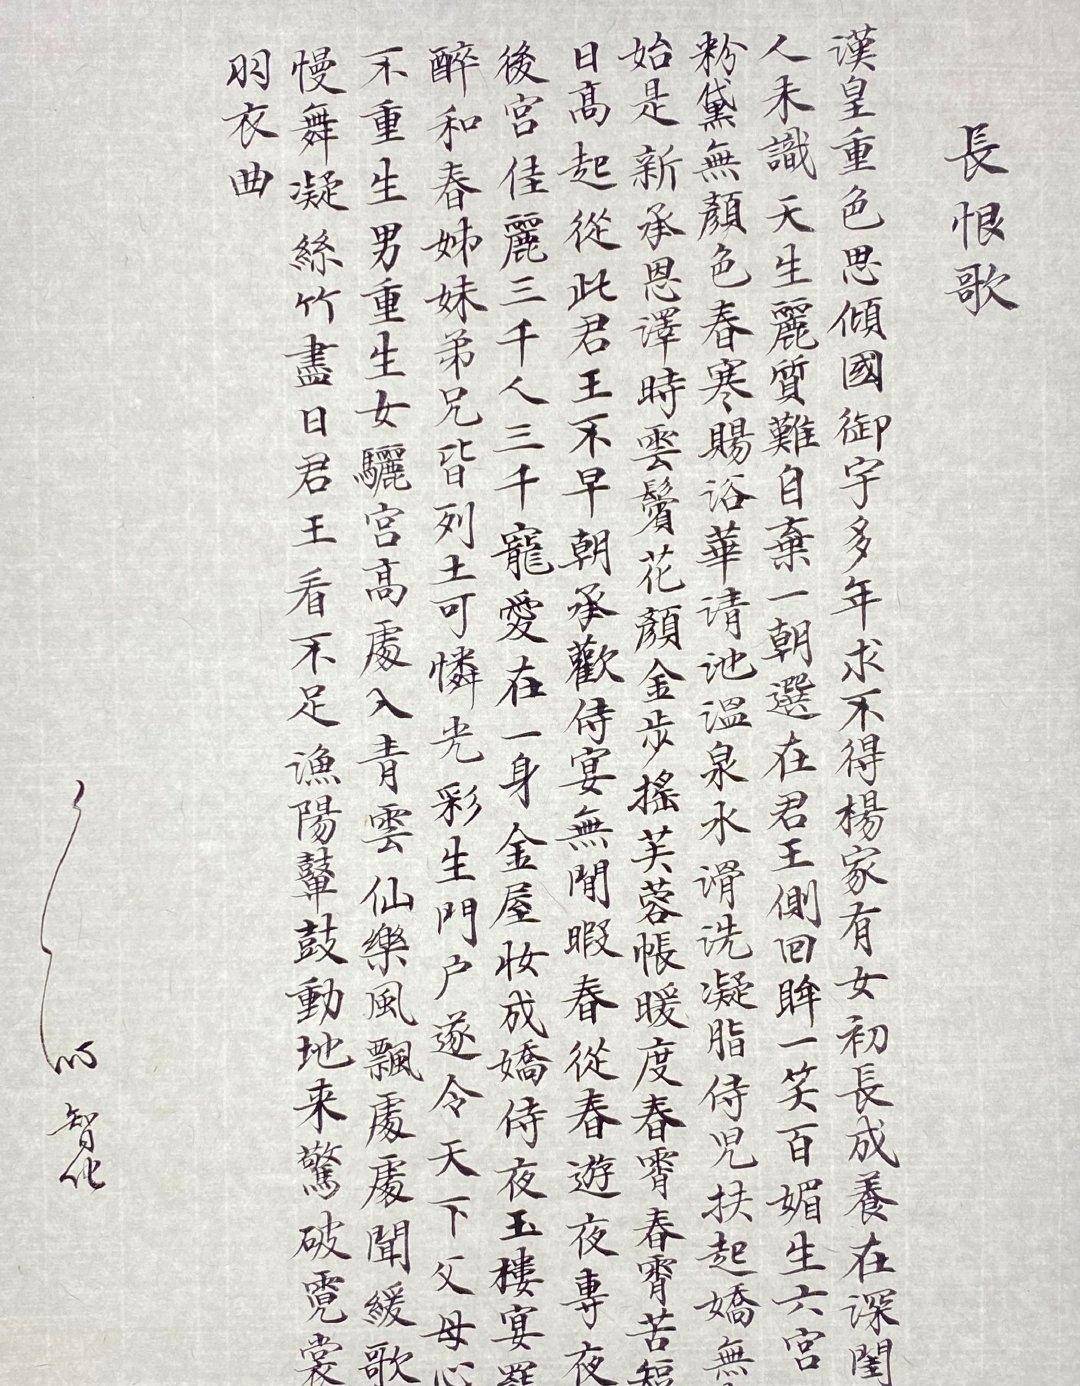 長恨歌
漢皇重色思傾國御宇多年求不得楊家有女初長成養在深閨
人未識天生麗質難自棄一朝選在君王側回眸一笑百媚生六宮
粉黛無顏色春寒賜浴華清池溫泉水滑洗凝脂侍児扶起嬌無
始是新承恩澤時雲鬢花顏金步搖芙蓉帳暖度春宵春宵苦短
日高起從此君王不早朝承歡侍宴無閒暇春從春遊夜專夜
後宮佳麗三千人三千寵愛在一身金屋妝成嬌侍夜玉樓宴罷
醉和春姊妹弟兄皆列土可憐光彩生門户遂令天下父母心
不重生男重生女驪宮高處入青雲仙樂風飄處處聞緩歌
慢舞凝絲竹盡日君王看不足漁陽鼙鼓動地来驚破霓裳
羽衣曲
智化